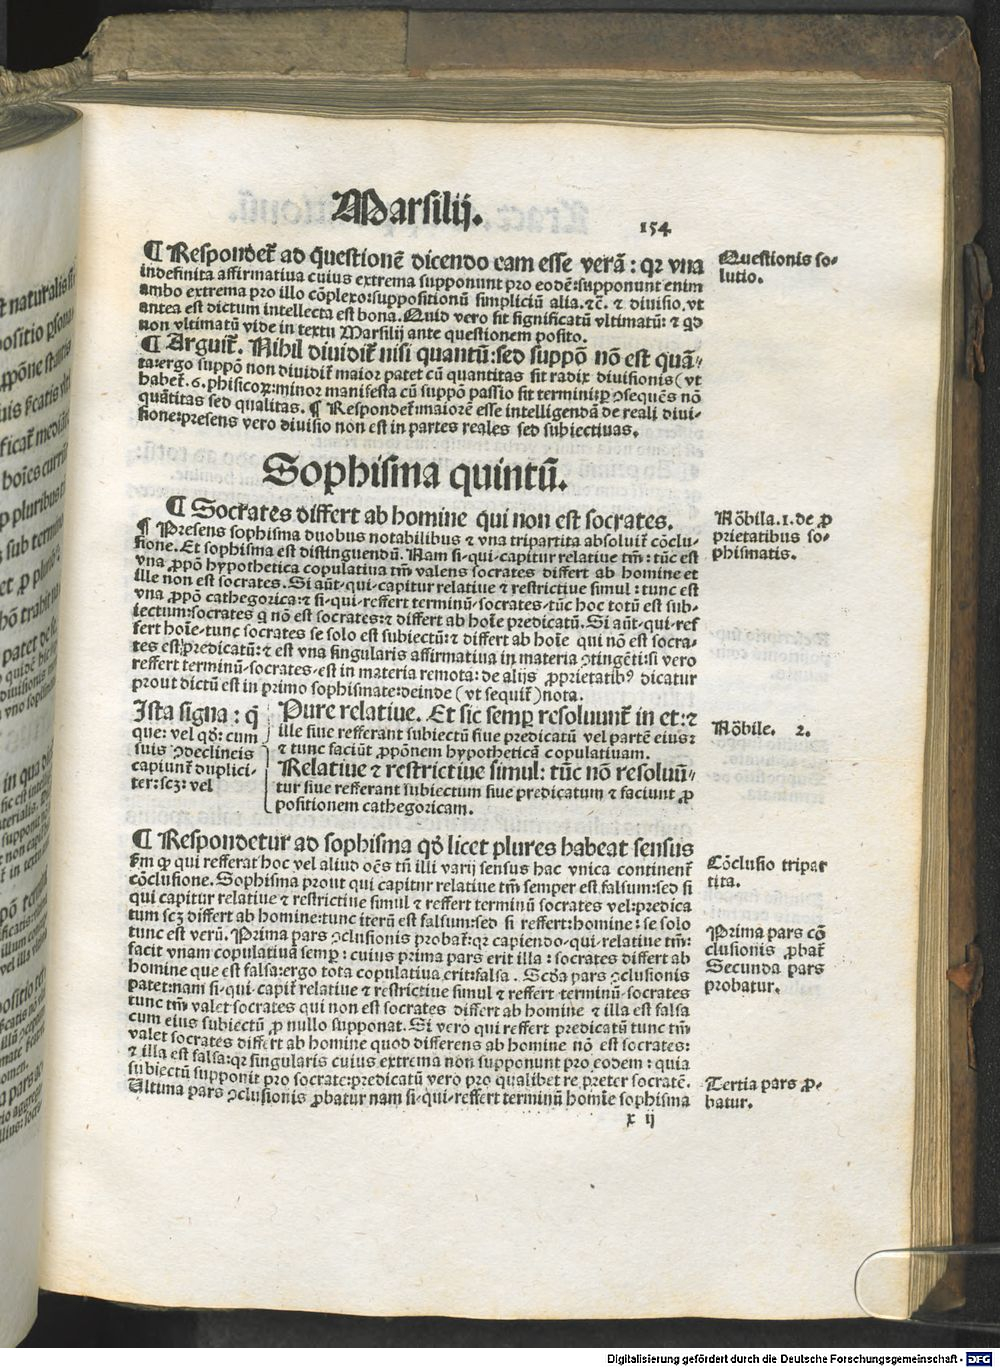 Marsilij.
154
¶ Respondet᷑ ad q̄uestionē dicendo eam esse verā : qꝛ vna
indefinita affirmatiua cuius extrema supponunt pro eodē: supponunt enim
ambo extrema pro illo cōplexo: suppositionū simpliciū alia. ⁊ē. ⁊ diuisio. vt
antea est dictum intellecta est bona. Quid vero sit significatū vltimatū: ⁊ qd
non vltimatū vide in textu Marsilij ante questionem posito.
Questionis so-
lutio.
¶ Arguit᷑. Nihil diuidit᷑ nisi quantū: sed suppō nō est quā-
ta: ergo suppōn non diuidit᷑ maior patet cū quantitas sit radix diuisionis (vt
habet᷑. 6. phisicoꝝ: minor manifesta cū suppōn passio sit terminiꝝ ꝓ ꝯsequēs nō
quātitas sed qualitas. ¶ Respondet᷑: maiorē esse intelligendā de reali diui-
sione: presens vero diuisio non est in partes reales sed subiectiuas.
Sophisma quintū.
¶ Socrates differt ab homine qui non est socrates.
¶ Presens sophisma duobus notabilibus ⁊ vna tripartita absoluit᷑ cōclu-
sione. Et sophisma est distinguendū. Nam si-qui-capitur relatiue tm̄: tūc est
vna ꝓpō hypothetica copulatiua tm̄ valens socrates differt ab homine et
ille non est socrates. Si aūt-qui-capitur relatiue ⁊ restrictiue simul: tunc est
vna ꝓpō cathegorica: ⁊ si-qui-reffert terminū-socrates-tūc hoc totū est sub-
iectum: socrates q nō est socrates: ⁊ differt ab hoīe predicatū. Si aūt-qui-ref
fert hoīe-tunc socrates se solo est subiectū: ⁊ differt ab hoīe qui nō est socra-
tes est predicatū: ⁊ est vna singularis affirmatiua in materia ꝯtingēti: si vero
reffert terminū-socrates-est in materia remota: de alijs ꝓprietatibꝰ dicatur
prout dictū est in primo sophismate: deinde (vt sequit᷑) nota.
Nōbila. 1. de ꝓ
prietatibus so-
phismatis.
Ista signa: q̄
que: vel qd̄: cum
suis ꝯdeclineis
capiunt᷑ duplici-
ter: scꝫ: vel
Pure relatiue. Et sic semp̱ resoluunt᷑ in et: ⁊
ille siue refferant subiectū siue predicatū vel partē eiusꝛ
⁊ tunc faciūt ꝓpōnem hypotheticā copulatiuam.
Relatiue ⁊ restrictiue simul: tūc nō resoluū-
tur siue refferant subiectum siue predicatum ⁊ faciunt ꝓ
positionem cathegoricam.
Nōbile. 2.
¶ Respondetur ad sophisma qd̄ licet plures habeat sensus
ẜm ꝙ qui refferat hoc vel aliud oēs tn̄ illi varij sensus hac vnica continent᷑
cōclusione. Sophisma prout qui capitur relatiue tm̄ semper est falsum: sed si
qui capitur relatiue ⁊ restrictiue simul ⁊ reffert terminū socrates vel: predica
tum scꝫ differt ab homine: tunc iterū est falsum: sed si reffert: homine: se solo
tunc est verū. Prima pars ꝯclusionis probat᷑: qꝛ capiendo-qui-relatiue tm̄:
facit vnam copulatiuā semp̱: cuius prima pars erit illa: socrates differt ab
homine que est falsa: ergo tota copulatiua erit: falsa. Scd̄a pars ꝯclusionis
patet: nam si-qui-capit᷑ relatiue ⁊ restrictiue simul ⁊ reffert terminū-socrates
tunc tm̄ valet socrates qui non est socrates differt ab homine ⁊ illa est falsa
cum eius subiectū ꝓ nullo supponat. Si vero qui reffert predicatū tunc tm̄
valet socrates differt ab homine quod differens ab homine nō est socrates:
⁊ illa est falsa: qꝛ singularis cuius extrema non supponunt pro eodem: quia
subiectū supponit pro socrate: predicatū vero pro qualibet re preter socratē.
Ultima pars ꝯclusionis ꝓbatur nam si-qui-reffert terminū homīe sophisma
Cōclusio tripar
tita.
Prima pars cō
clusionis ꝓbat᷑
Secunda pars
probatur.
Tertia pars ꝓ-
batur.
x ij
Digitalisierung gefördert durch die Deutsche Forschungsgemeinschaft - DFG